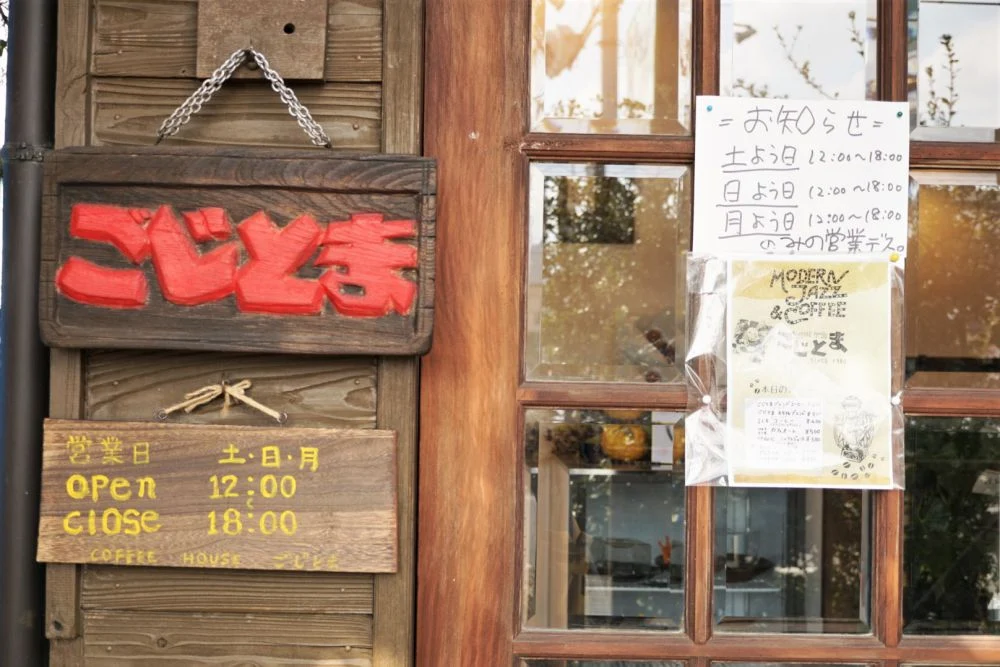 ごじとま
営業日 土・日・月
OPEN 12:00
CLOSE 18:00
COFFEE HOUSE ごじとま
=お知らせ=
土よう日 12:00〜18:00
日よう日 12:00〜18:00
月よう日 12:00〜18:00
のみの営業デス。
MODERN
JAZZ
&COFFEE
ごじとま
本日の